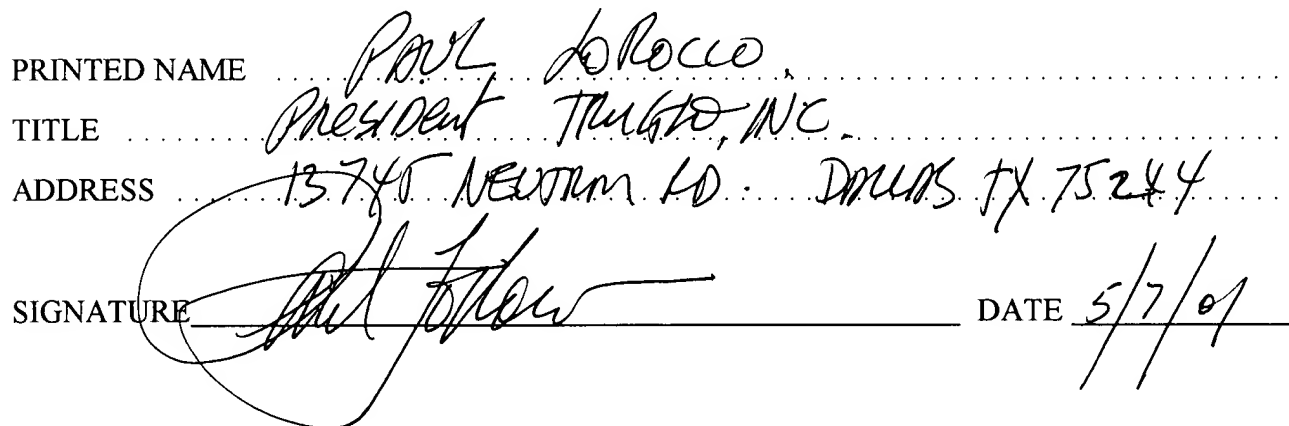 PRINTED NAME PAUL LoRocco.
TITLE PResiDent TRUGLO, INC.
ADDRESS 13745 NEUTRON RD. DALLAS TX 75244
SIGNATURE Paul LoRocco DATE 5/7/01